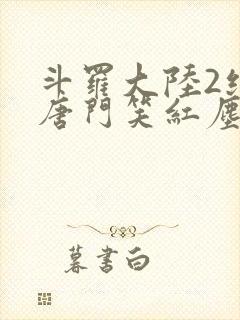 斗羅大陸2
唐門笑紅塵
暮書白